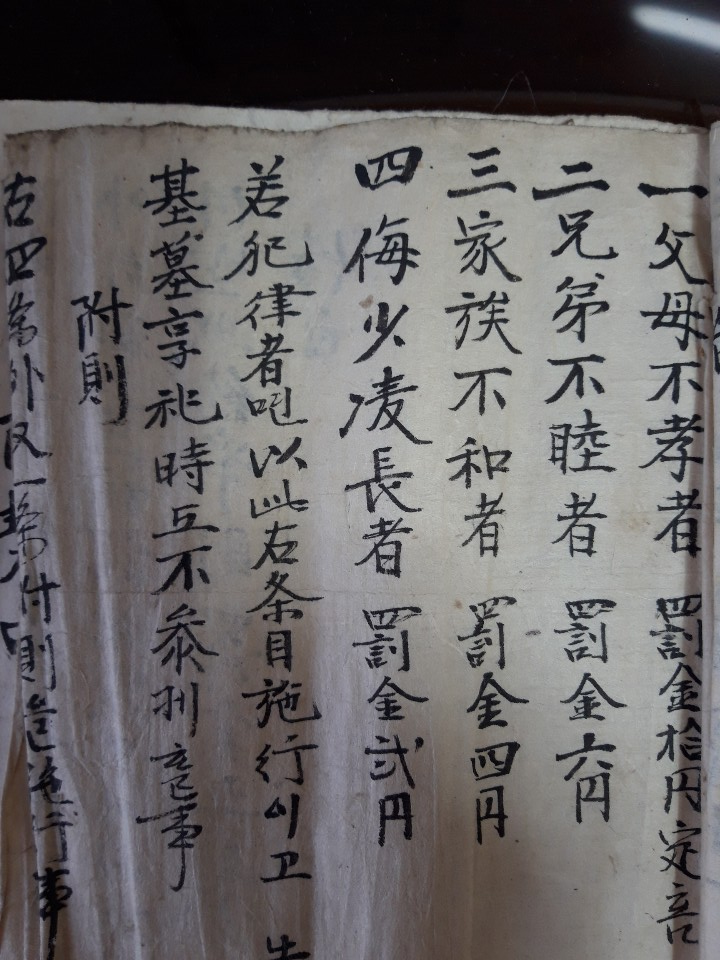 一父母不孝者 罰金拾円定
二兄弟不睦者 罰金六円
三家族不和者 罰金四円
四侮少凌長者 罰金弐円
若犯律者 以此右条目施行
基墓享祀時 不参 事
附則
右四条外 附則 施行事